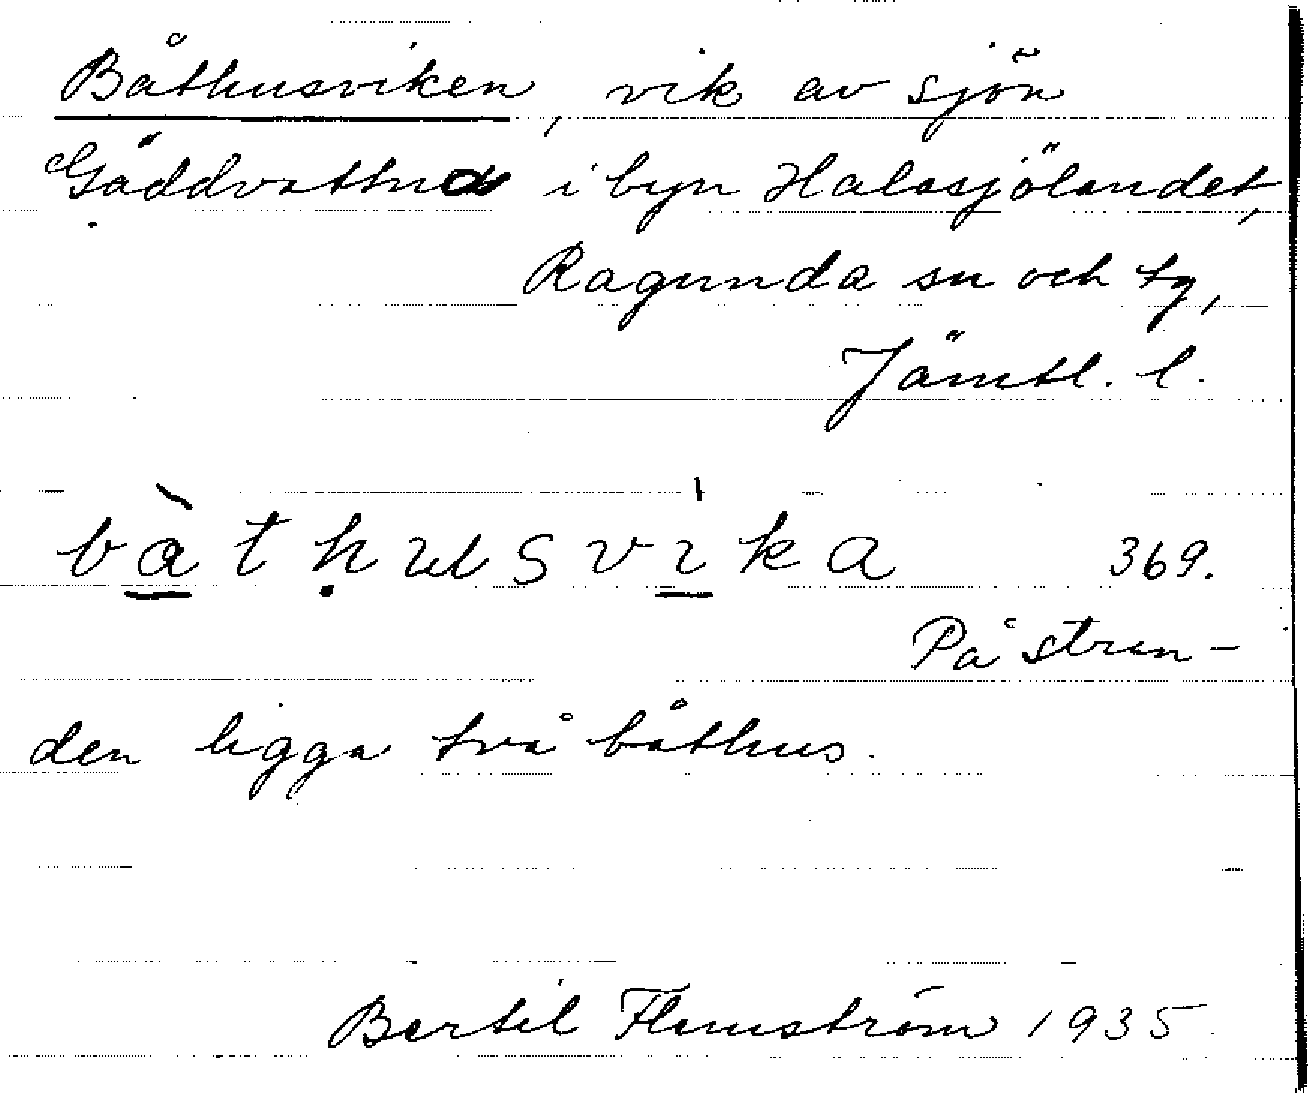 Båthusviken, vik av sjön
Gäddvattna i byn Halasjölandet,
Ragunda sn och tg,
Jämtl. l.
bàthusvika 369.
På stran-
den ligga två båthus.
Bertil Flemström 1935